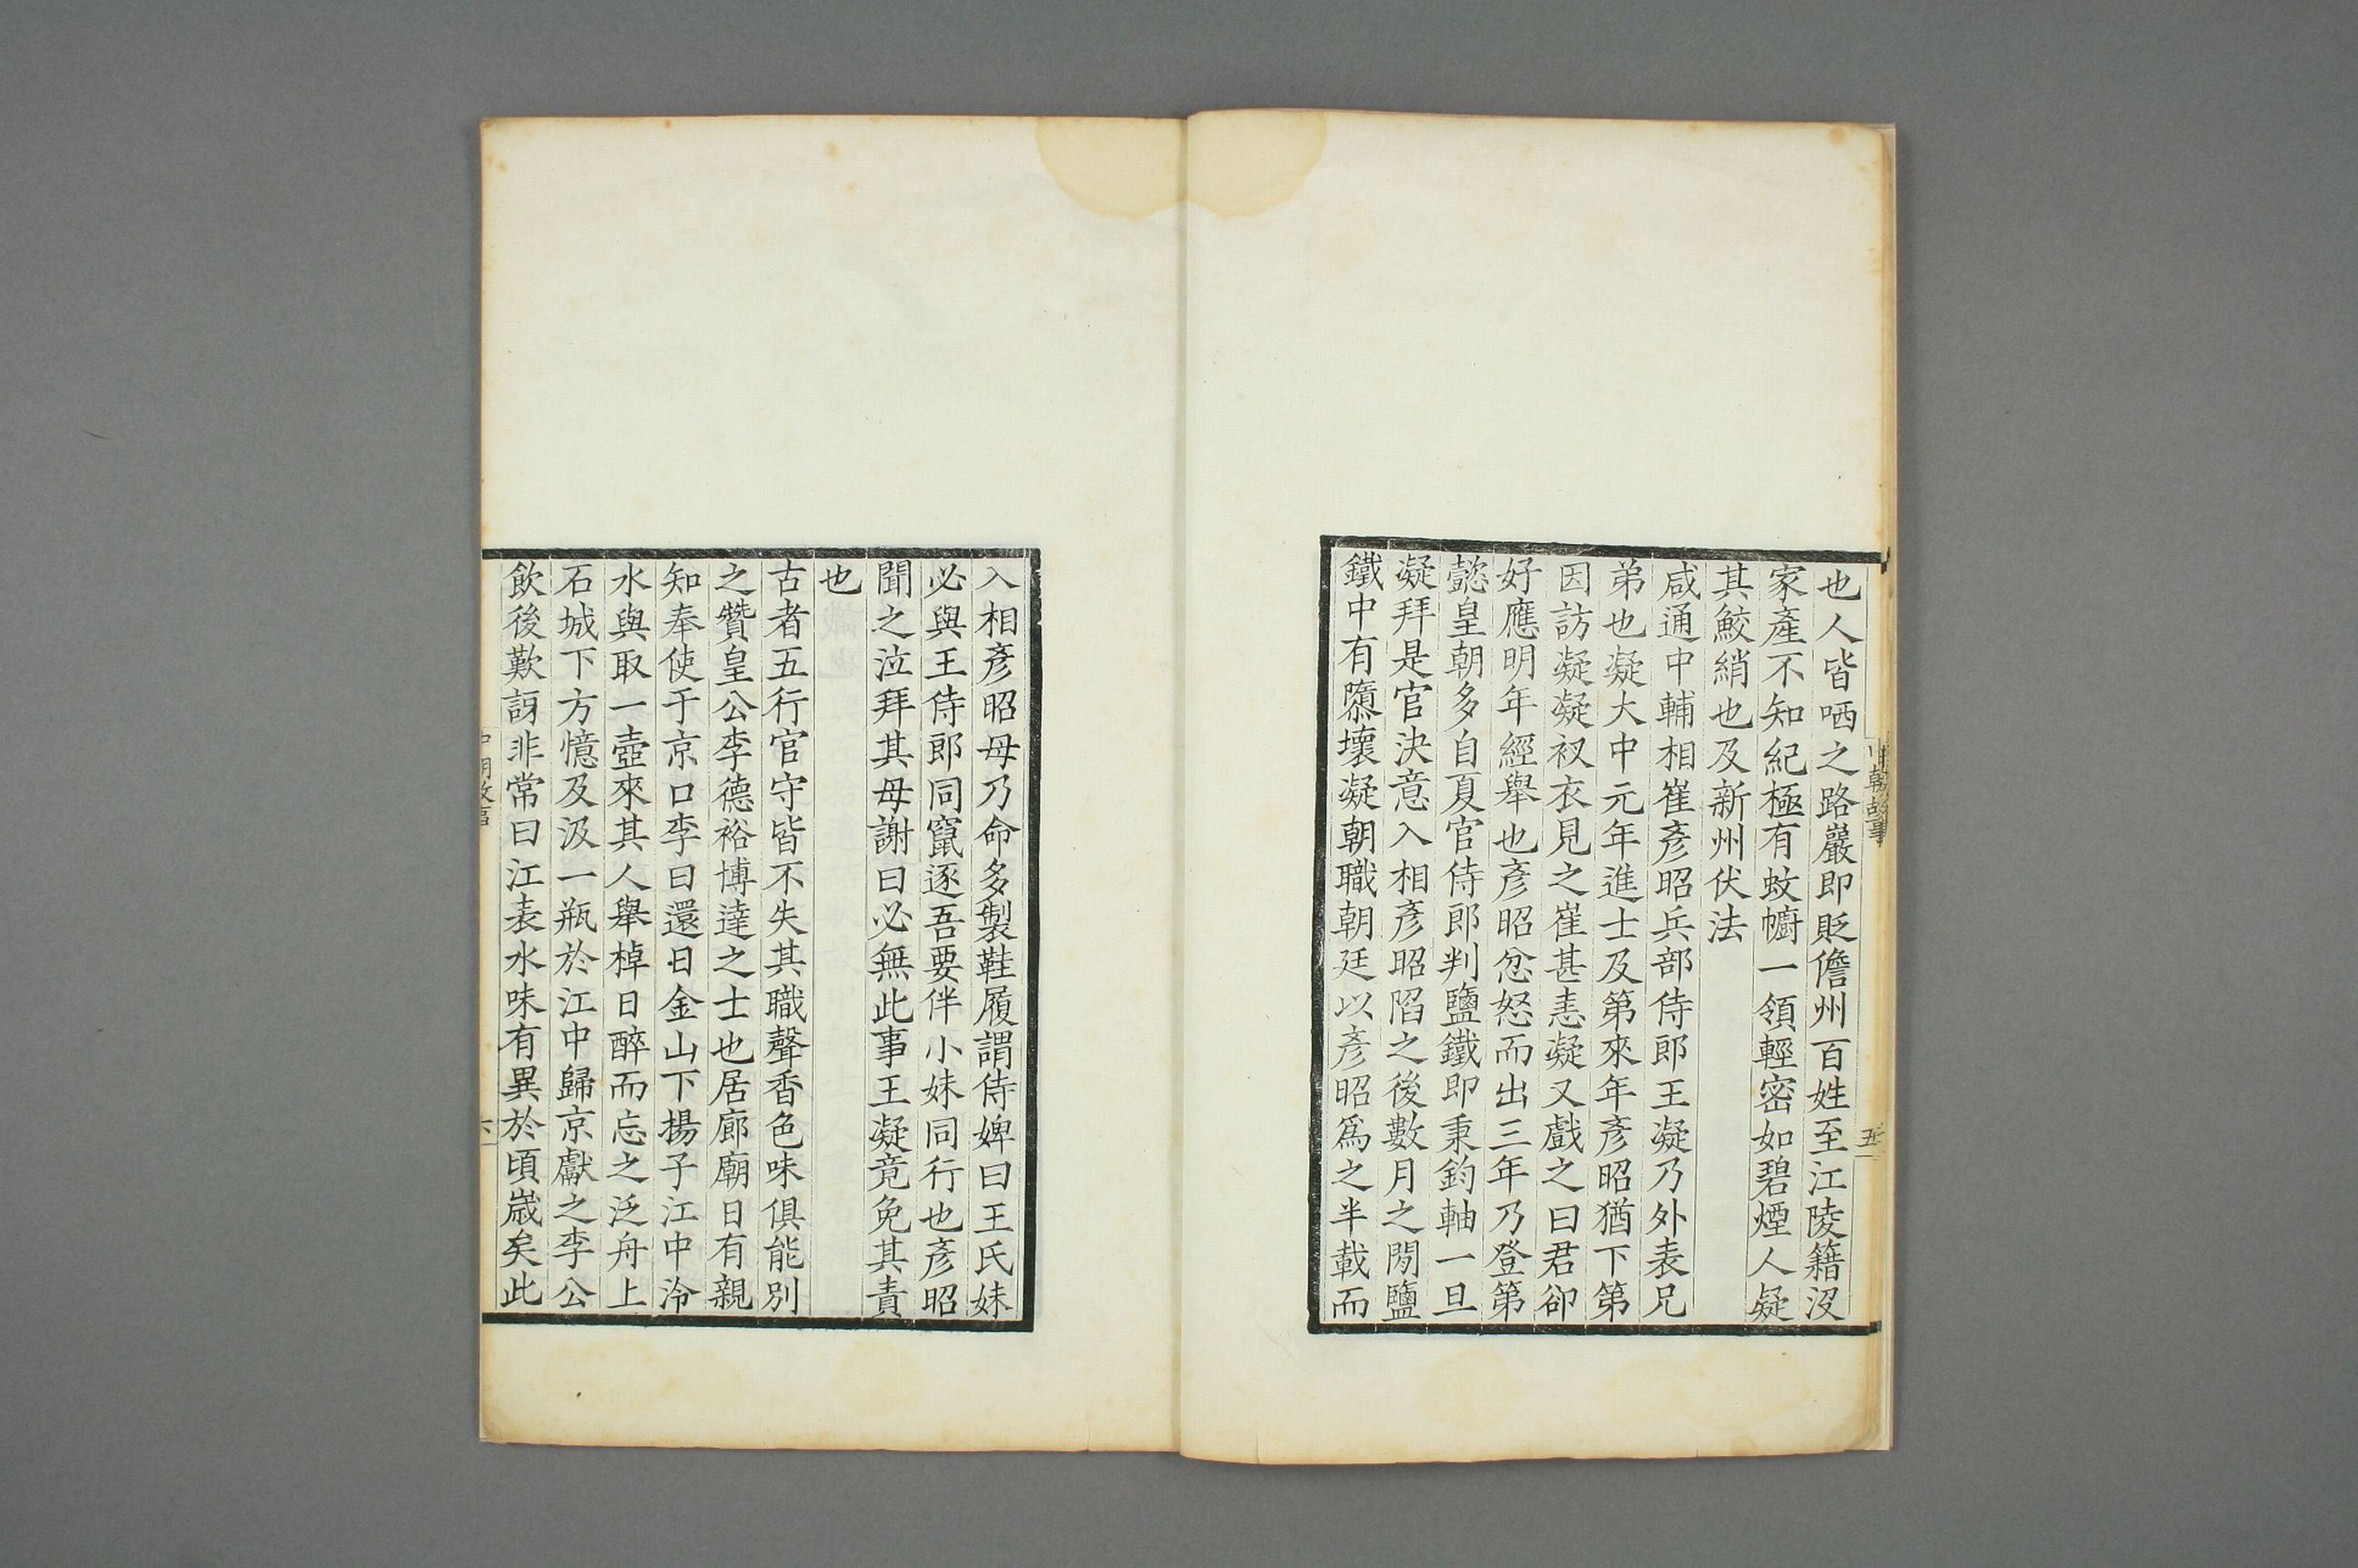 也人皆哂之路巖即貶儋州百姓至江陵籍沒
家產不知紀極有蚊幮一領輕密如碧煙人疑
其鮫綃也及新州伏法
咸通中輔相崔彥昭兵部侍郎王凝乃外表兄
弟也凝大中元年進士及第來年彥昭猶下第
因訪凝凝衩衣見之崔甚恚凝又戲之曰君卻
好應明年經舉也彥昭忿怒而出三年乃登第
懿皇朝多自夏官侍郎判鹽鐵即秉鈞軸一旦
凝拜是官決意入相彥昭陷之後數月之閒鹽
鐵中有隳壞凝朝職朝廷以彥昭爲之半載而
中朝故事
五
入相彥昭母乃命多製鞋履謂侍婢曰王氏妹
必與王侍郎同竄逐吾要伴小妹同行也彥昭
聞之泣拜其母謝曰必無此事王凝竟免其責
也
古者五行官守皆不失其職聲香色味俱能別
之贊皇公李德裕博達之士也居廊廟日有親
知奉使于京口李曰還日金山下揚子江中泠
水與取一壺來其人舉棹日醉而忘之泛舟上
石城下方憶及汲一瓶於江中歸京獻之李公
飲後歎訝非常曰江表水味有異於頃歲矣此
中朝故事
六